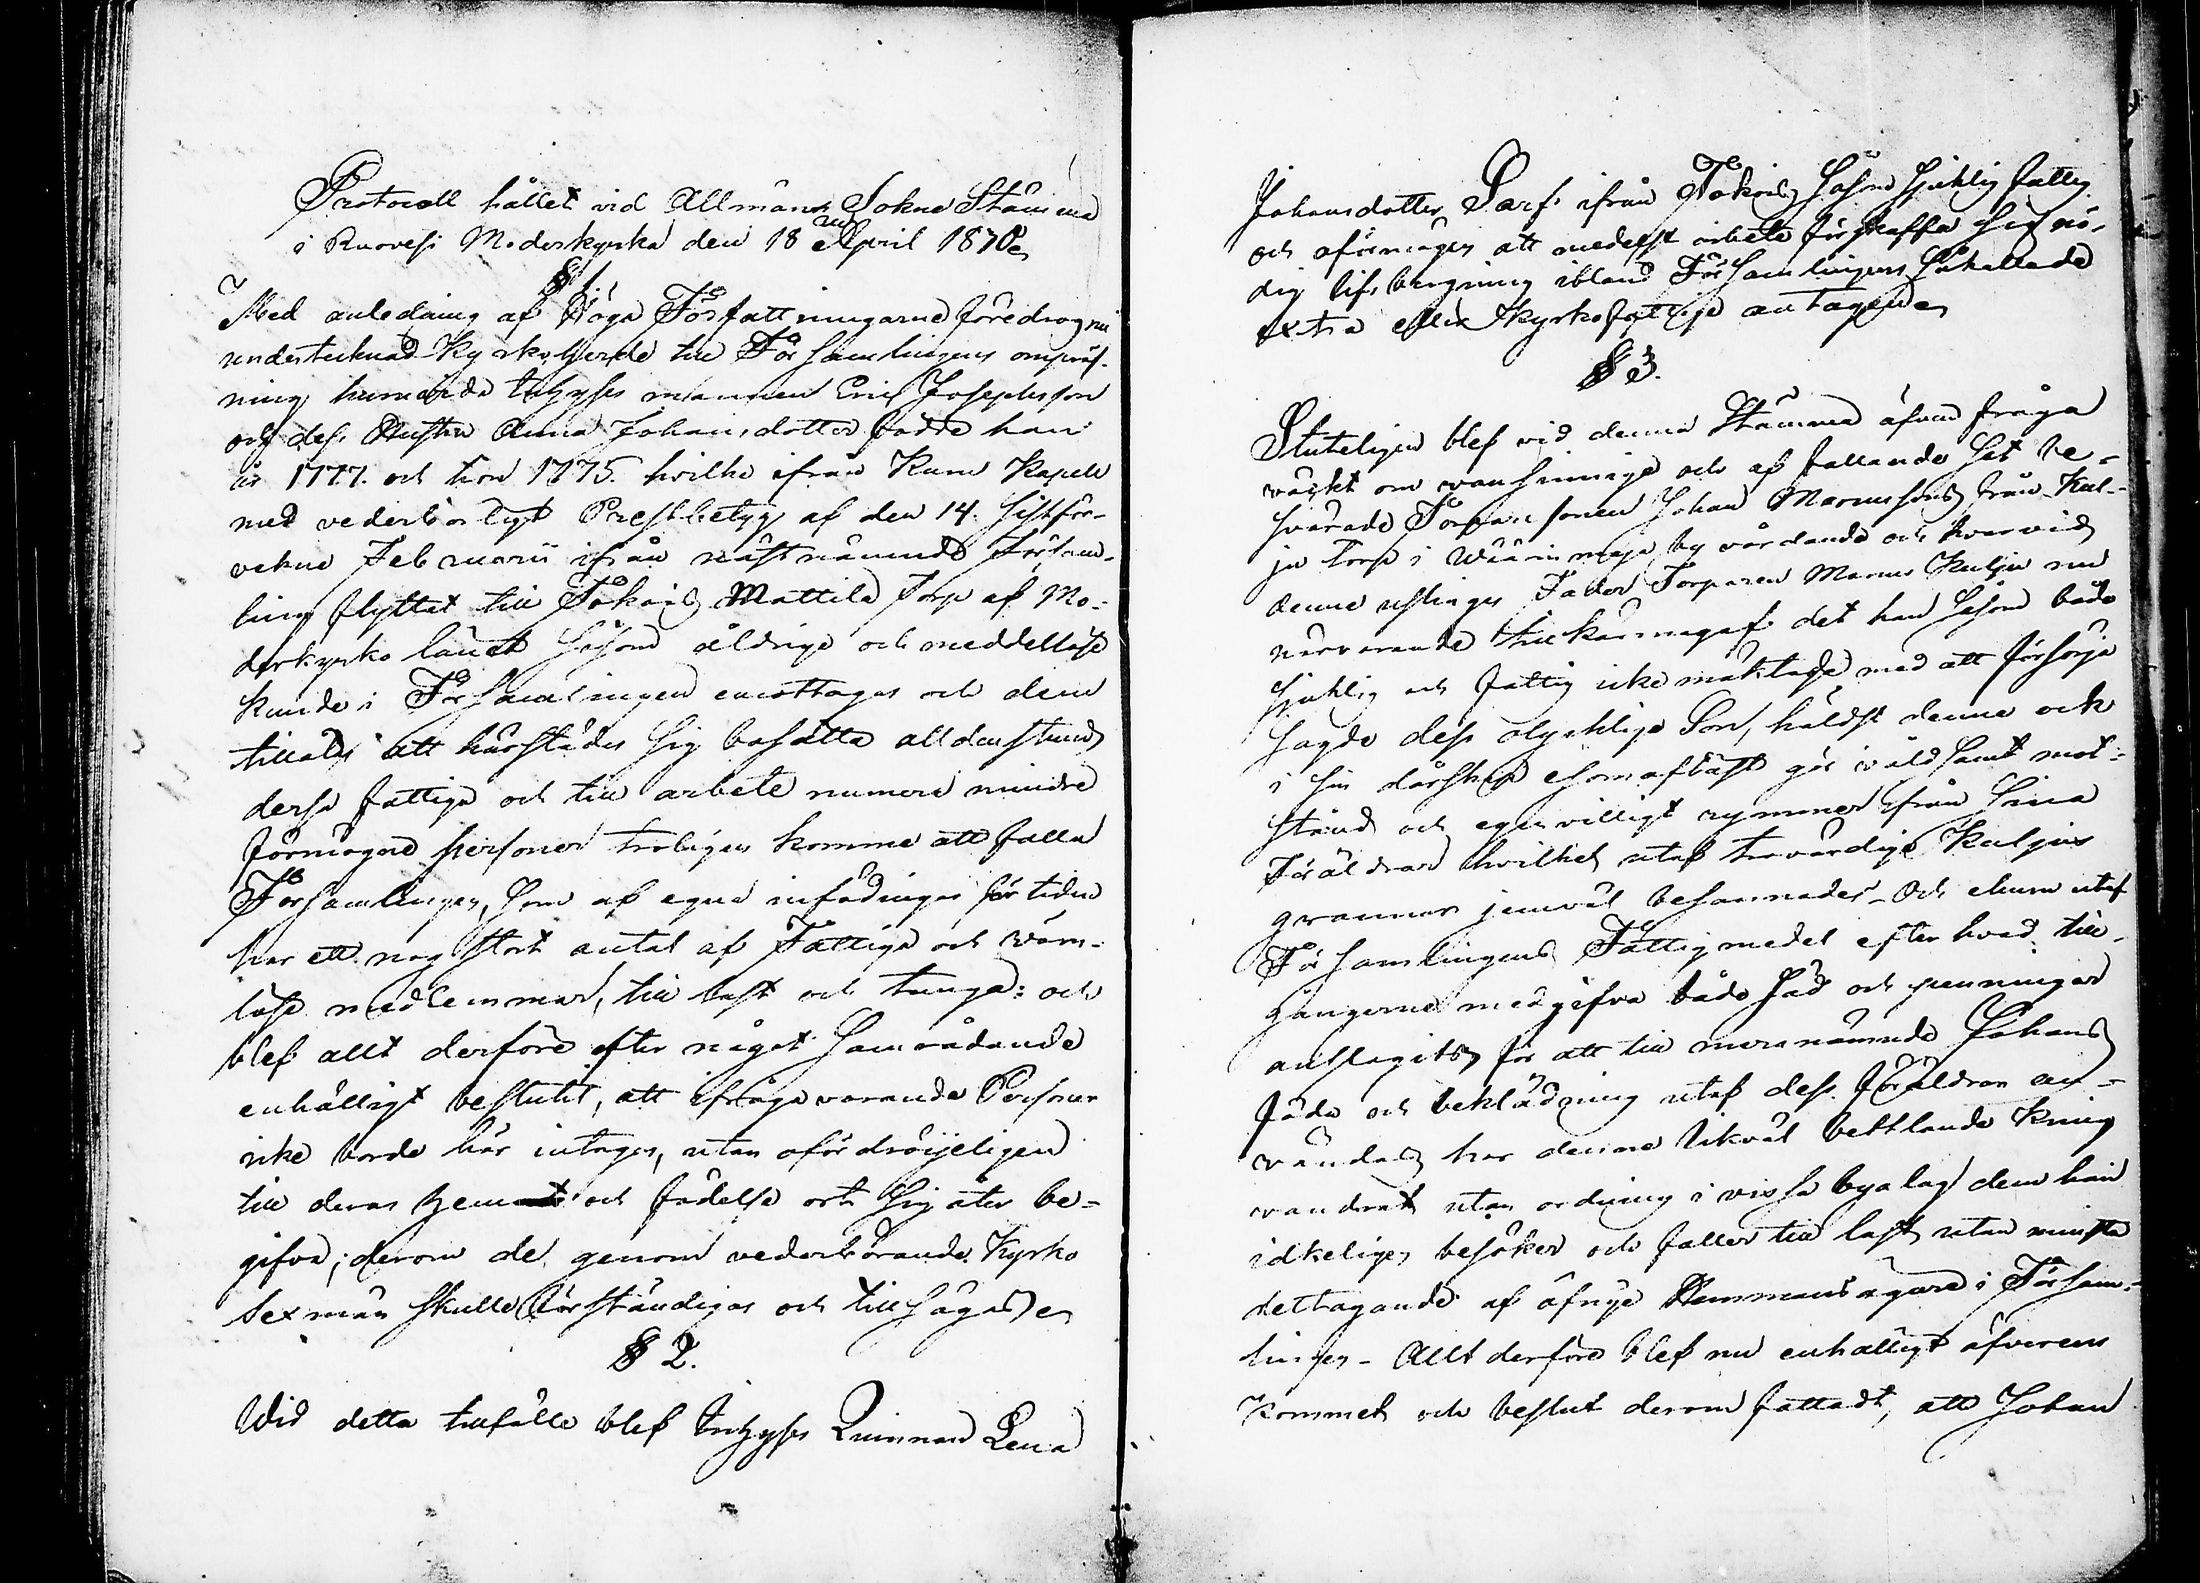 Protocoll hållet vid Allmän Sokne Stämma
i Ruovesi Moderkyrka den 18 April 1830
§ 1.
Med anledning af Höga Författningarne föredrog nu
undertecknad Kyrkoherde till Församlingens ompröf-
ning huruvida inhyses mannen Eric Josephsson
och dess Hustru Anna Johansdotter födde han
år 1777. och hon 1775. hvilka ifrån Kuru Kapell
med vederbörligt Prestbetyg af den 14. sistför-
vekne Februarii ifrån nästnämnde Försam-
ling flyttat till Mattila Torp af Mo-
derkyrko länet såsom åldrige och meddellöse
kunde i Församlingen emottagas och dem
tillåtas att härstädes sig bosätta alldenstund
desse fattige och till arbete numera mindre
förmögne personer troligen komme att falla
Församlingen, som af egne infödingar för tiden
har ett nog stort antal af Fattige och värn-
löse medlemmar, till last och tunga: och
blef allt derföre efter något samrådande
enhälligt beslutit, att ifrågavarande Personer
icke borde här intagas, utan ofördröijeligen
till deras hemort och födelse ort sig åter be-
gifva; derom de genom vederbörande Kyrko
Sexmän skulle förständigas och tillsägas
§ 2.
Wid detta tillfälle blef Inhyses Quinnan Lena
Johansdotter Sarf ifrån såsom sjuklig fattig
och oförmögen att medelst arbete förskaffa sig nö-
dig lifsbergning ibland Församlingens såkallade
extra eller kyrkofattige antagen
§ 3.
Sluteligen blef vid denna Stämma äfven fråga
väckt om vansinnige och af fallande sot be-
svärade Torparesonen Johan Mårtensson från Kul-
ju Torp i by vårdande och hvarvid
denne uslings Fader Torparen Kulju nu
närvarande tillkännagaf det han såsom både
sjuklig och fattig icke mäktade med att försörja
sagde dess olycklige Son, häldst denne ock
i sin dårskap esomoftast gör våldsamt mot-
stånd och egenvilligt rymmer ifrån sina
Föräldrar hvilket utaf trovärdige Kuljus
grannar jemväl besannades. Och ehuru utaf
Församlingens Fattigmedel efter hvad till-
gångarne medgifva både säd och penningar
anslagits för att till merenämnde Johans
föda och beklädning utaf dess föräldrar an-
vändas har denne likväl bettlande kring
vandrat utan ordning i vissa byalag dem han
idkeligen besöker och faller till last utan minsta
deltagande af öfrige Hemmansägare i Försam-
lingen. Allt derföre blef nu enhälligt öfverens
kommet och beslut derom fattadt, att Johan